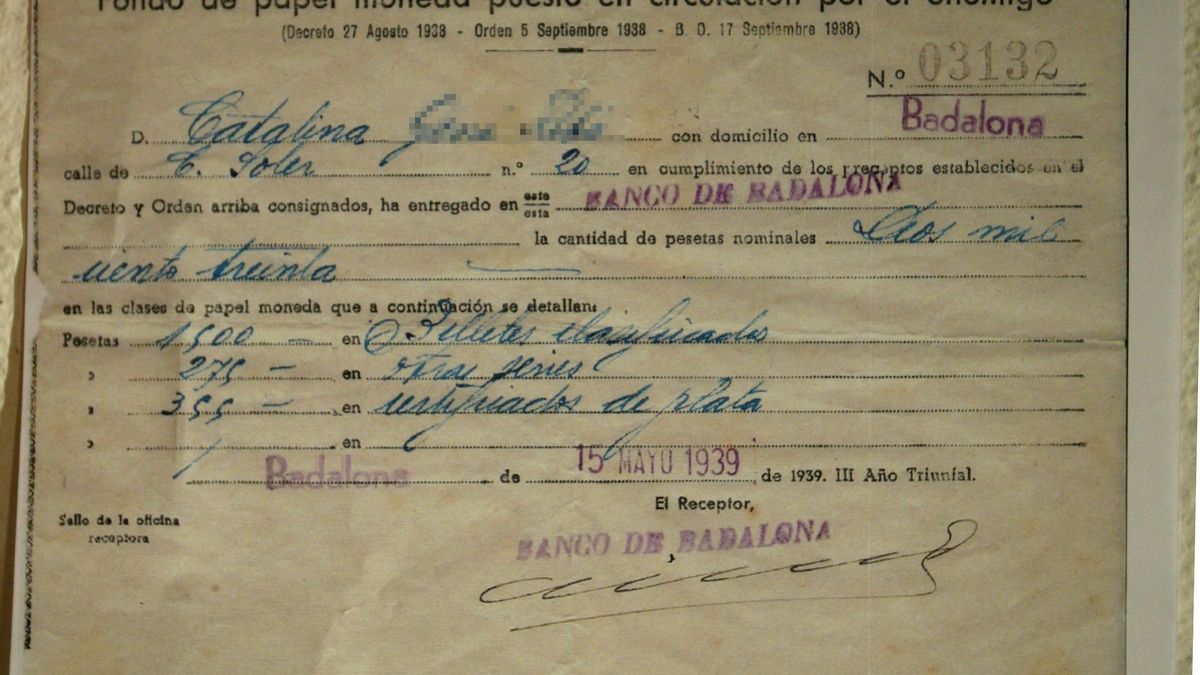 Fondo de papel moneda puesto en circulación por el enemigo
(Decreto 27 Agosto 1938 - Orden 5 Septiembre 1938 - B. O. 17 Septiembre 1938)
N.º 03132
D. Catalina con domicilio en Badalona
calle de E. Soler n.º 20 en cumplimiento de los preceptos establecidos en el
Decreto y Orden arriba consignados, ha entregado en este/esta BANCO DE BADALONA
la cantidad de pesetas nominales Dos mil
ciento treinta
en las clases de papel moneda que a continuación se detallan:
Pesetas 1500 - en Billetes clasificados
» 275 - en otras series
» 355 - en certificados de plata
» en
Badalona de 15 MAYO 1939 de 1939. III Año Triunfal.
El Receptor,
Sello de la oficina
receptora
BANCO DE BADALONA